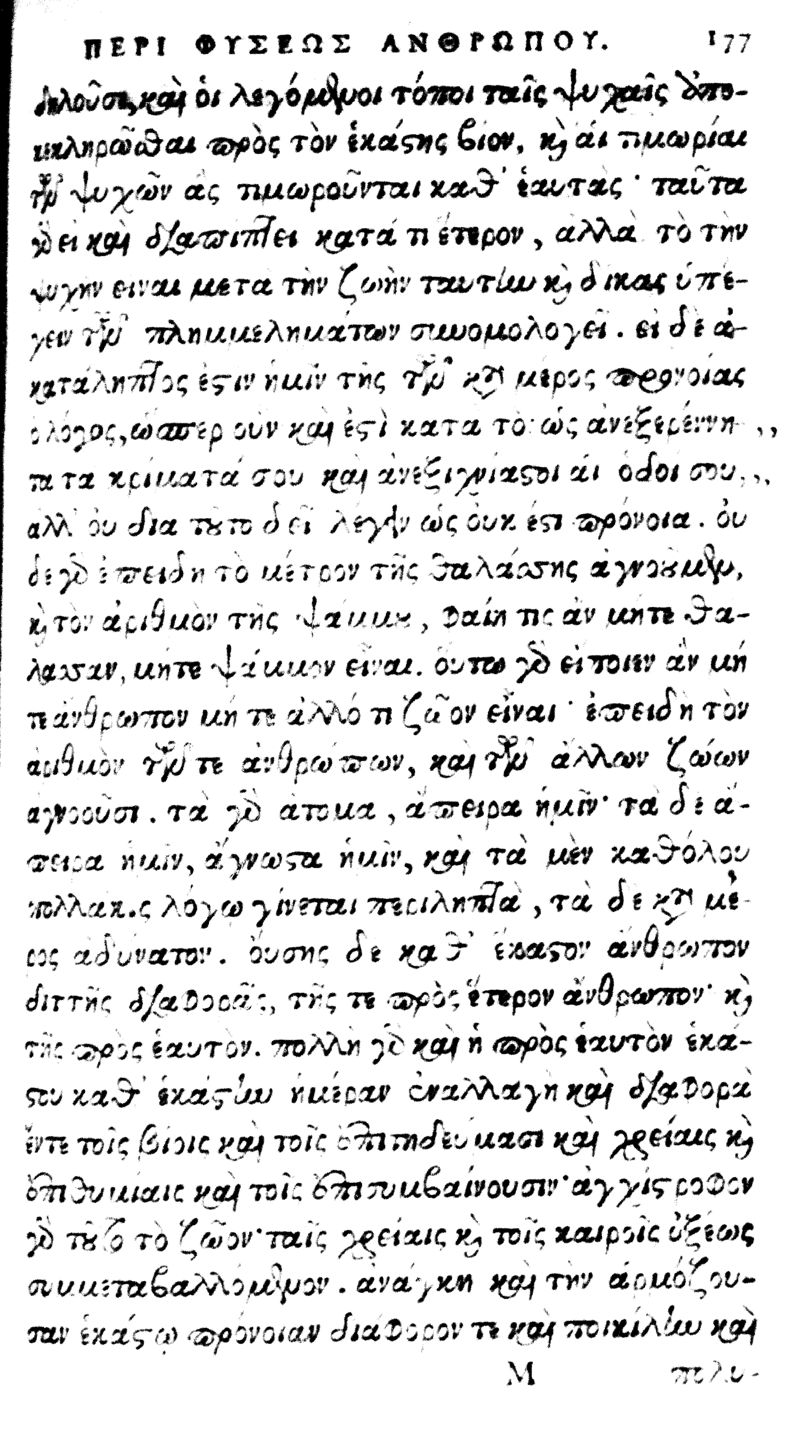 ΠΕΡΙ ΦΥΣΕΩΣ ΑΝΘΡΩΠΟΥ. 177
δηλοῦσι, καὶ ὁι λεγόμενοι τόποι ταῖς ψυχαῖς ἀπο-
κεκληρῶσθαι πρὸς τὸν ἑκάστης βιον, καὶ ἁι τιμωρίαι
τῶν ψυχῶν ἁς τιμωροῦνται καθ' ἑαυτας· ταῦτα
γὰρ ει καὶ διαπιπτει κατά τι έτερον, αλλὰ τὸ τὴν
ψυχὴν ειναι μετα τὴν ζωὴν ταυτην καὶ δικας ὑπέ-
χειν τῶν πλημμελημάτων συνομολογεῖ. ει δὲ ἀ-
κατάληπτος ἐστιν ἡμῖν τῆς τῶν κατὰ μέρος προνοίας
ο λόγος, ὡσπερ ουν καὶ ἐστὶ κατα τὸ· ὡς ἀνεξερέυνη- ,,
τα τα κρίματά σου καὶ ἀνεξιχνίαστοι ἁι ὁδοι σου, ,,
αλλ' ὀυ δια τουτο δεῖ λέγειν ὡς ὀυκ ἐστι πρόνοια. ὀυ
δε γὰρ ἐπειδὴ τὸ μέτρον τῆς θαλάσσης ἀγνοουμεν,
καὶ τὸν ἀριθμὸν τῆς ψάμμου, φαίη τις ἀν μήτε θά-
λασσαν, μήτε ψάμμον εἶναι. ὁυτω γὰρ ἐιποιεν ἀν μή
τε ἀνθρωπον μή τε ἀλλό τι ζῶον εἶναι· ἐπειδὴ τὸν
ἀριθμὸν τῶν τε ἀνθρώπων, καὶ τῶν ἀλλων ζώων
αγνοοῦσι. τὰ γὰρ ἀτομα, ἀπειρα ἡμῖν· τὰ δὲ ἀ-
πειρα ἡμῖν, ἀγνωστα ἡμῖν, καὶ τὰ μὲν καθόλου
πολλακις λόγω γίνεται περιληπτὰ, τὰ δὲ κατὰ μέ-
ρος αδύνατον. ὀυσης δὲ καθ' ἑκαστον ἀνθρωπον
διττῆς διαφορᾶς, τῆς τε πρὸς ἕτερον ἀνθρωπον· καὶ
τῆς πρὸς ἑαυτὸν. πολλὴ γὰρ καὶ ἡ πρὸς ἑαυτὸν ἑκά-
στου καθ' ἑκάστην ἡμέραν ἐναλλαγὴ καὶ διαφορὰ
ἔν τε τοῖς βίοις καὶ τοῖς ἐπιτηδεύμασι καὶ χρείαις καὶ
ἐπιθυμίαις καὶ τοῖς ἐπισυμβαίνουσιν· ἀγχίστροφον
γὰρ τουτο τὸ ζῶον· ταῖς χρείαις καὶ τοῖς καιροῖς ὀξέως
συμμεταβαλλόμενον. ανάγκη καὶ τὴν ἁρμόζου-
σαν ἑκάστῳ πρόνοιαν διάφορον τε καὶ ποικίλην καὶ
Μ πολυ-